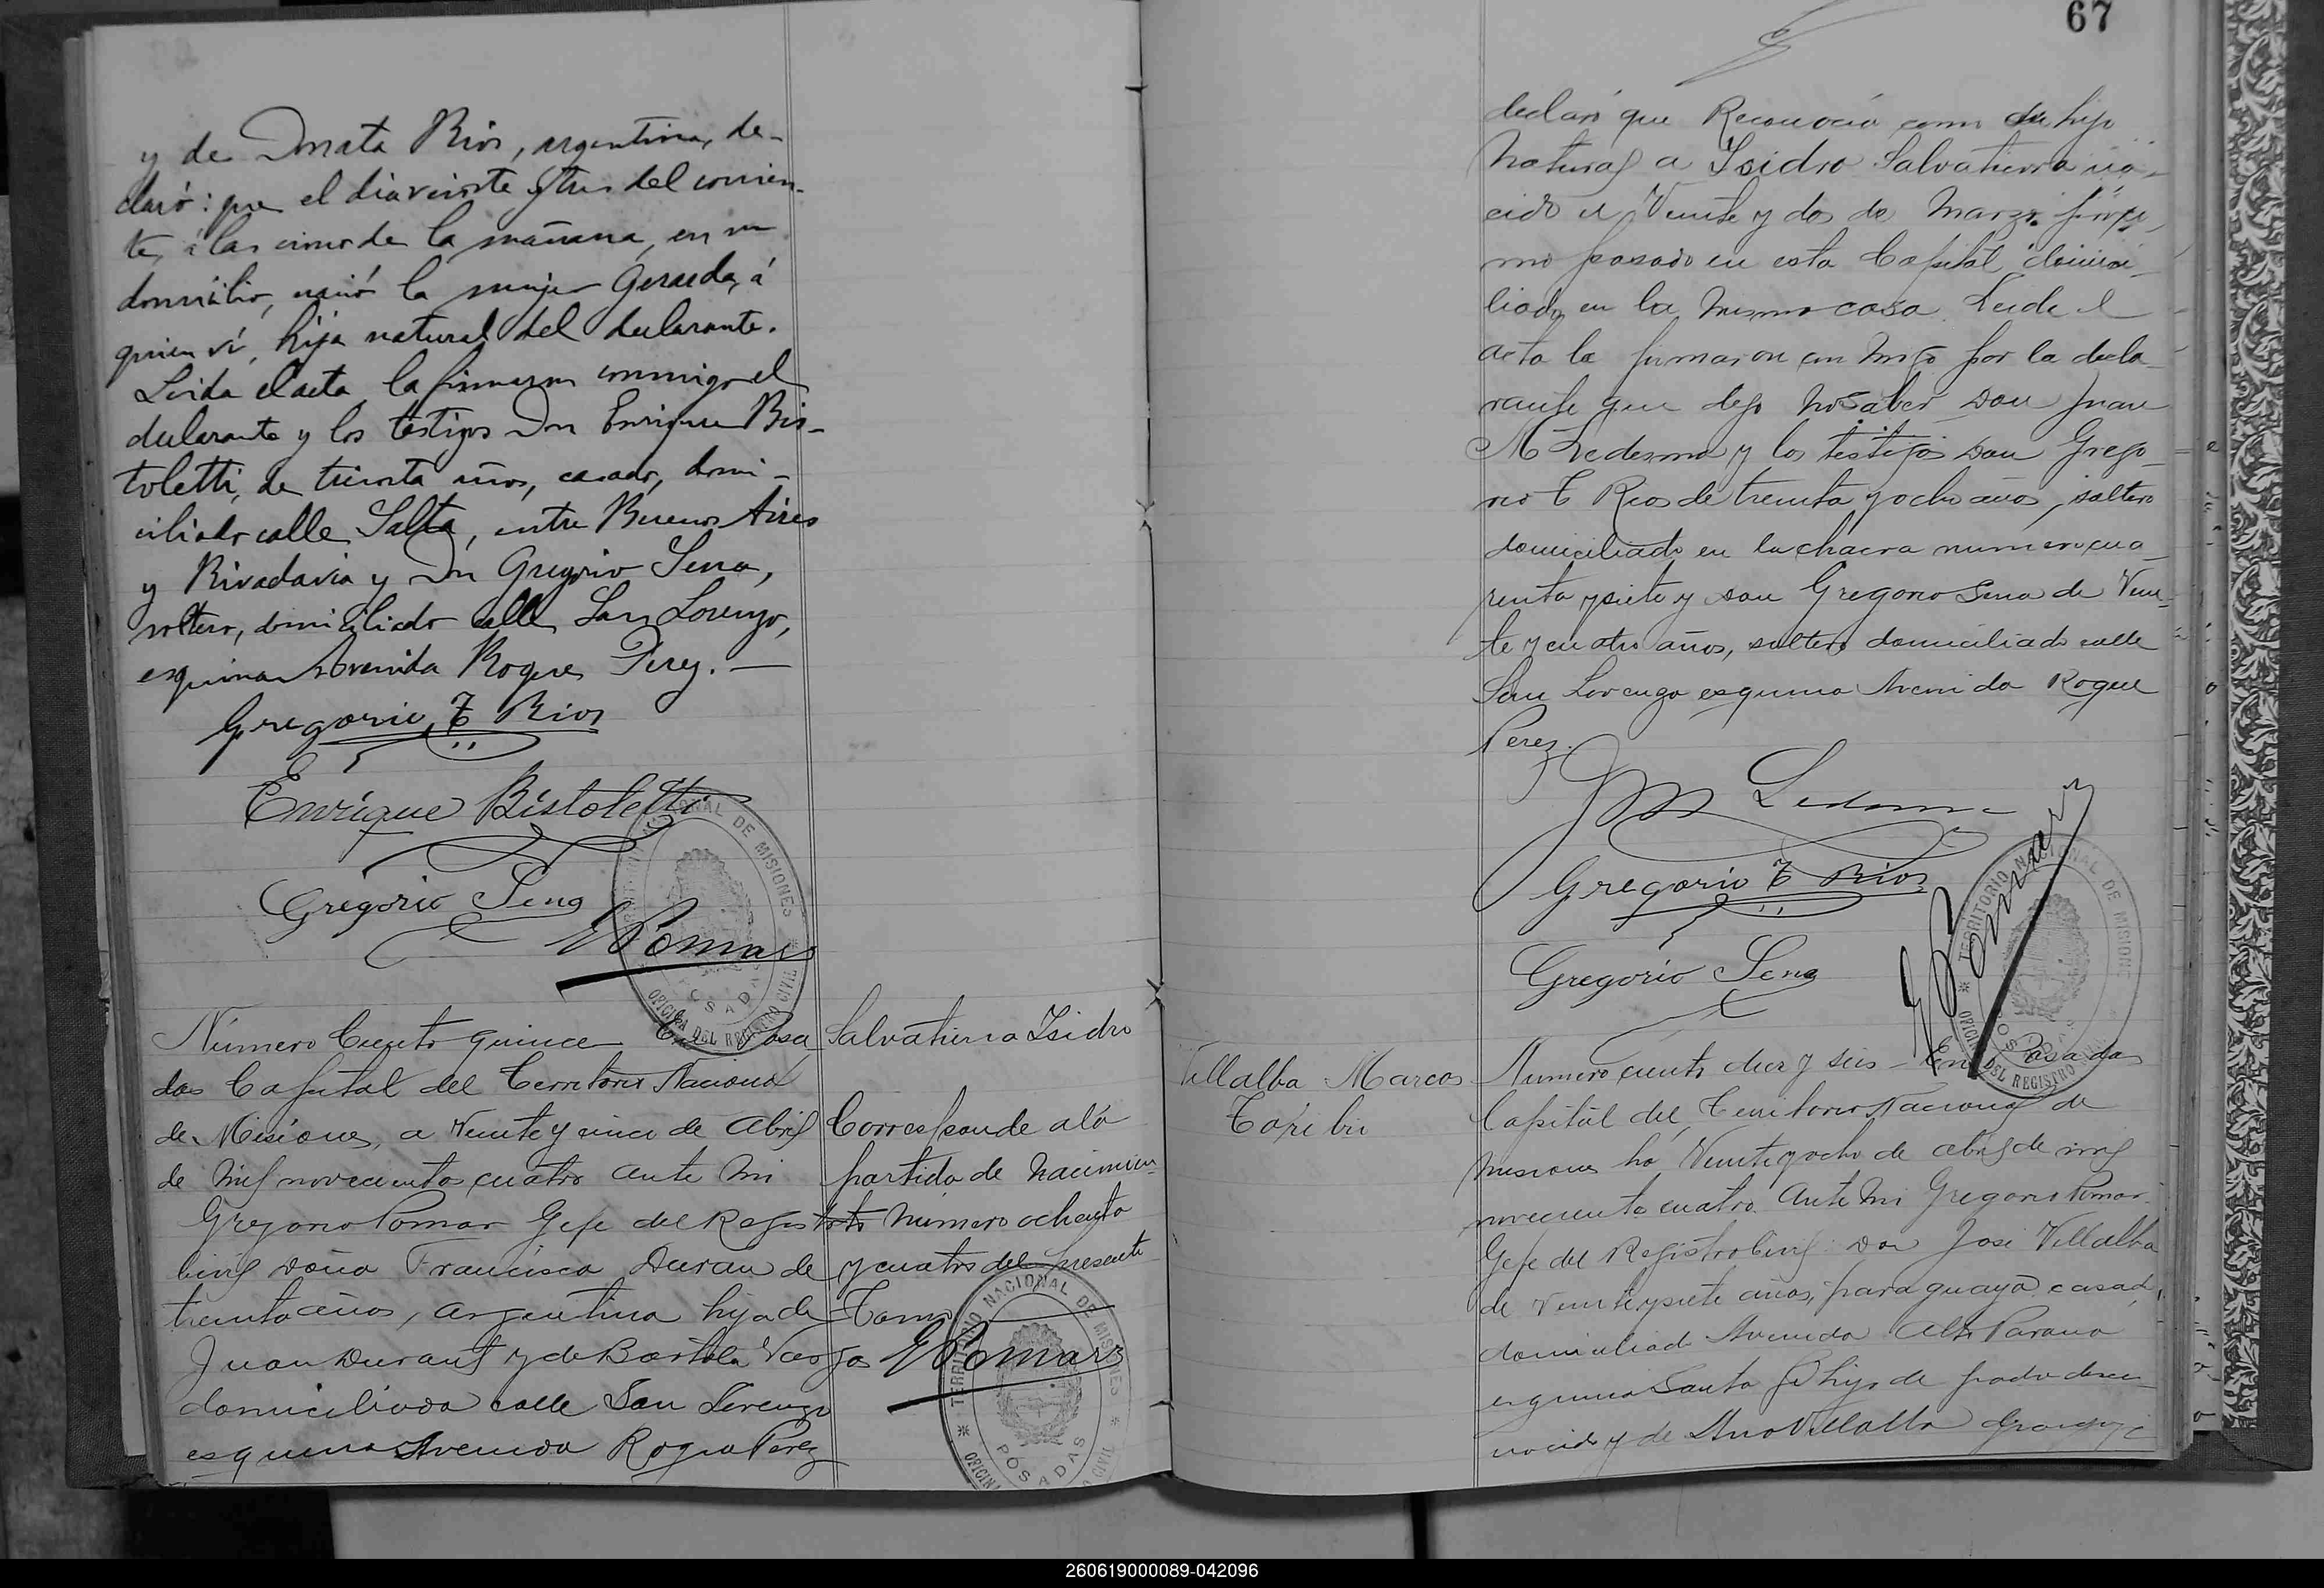 y de Donata Rios, argentina, de-
claró: que el dia veinte y tres del corrien-
te, á las cinco de la mañana, en su
domicilio, nació la mujer Gerarda, á
quien ví, hija natural del declarante.
Leida el acta, la firmaron conmigo el
declarante y los testigos Don Enrique Bis-
toletti, de treinta años, casado, domi-
ciliado calle Salta, entre Buenos Aires
y Rivadavia y Don Gregorio Sena,
soltero, domiciliado calle San Lorenzo,
esquina Avenida Roque Perez. —
Gregorio T Rios
Enrique Bistoletti
Gregorio Sena
GPomar
TERRITORIO NACIONAL DE MISIONES
OFICINA DEL REGISTRO CIVIL
POSADAS
Número Ciento quince En Posa
das Capital del Territorio Nacional
de Misiones, a Veinte y cinco de Abril
de mil novecientos cuatro ante mi
Gregorio Pomar Gefe del Registro
Civil Doña Francisca Duran de
treinta años, argentina hija de
Juan Durant y de Bartola Vargas
domiciliada calle San Lorenzo
esquina Avenida Roque Perez
Salvatierra Isidro
Corresponde a la
partida de nacimien-
to número ochenta
y cuatro del presente
Tomo
GPomar
TERRITORIO NACIONAL DE MISIONES
OFICINA
CIVIL
POSADAS
67
declaró que Reconocia como su hijo
Natural a Isidro Salvatierra na-
cido el Veinte y dos de Marzo próxi-
mo pasado en esta Capital, domici-
liado en la misma casa. Leida el
acta la firmaron con migo por la decla-
rante que dijo no saber Don Juan
M Ledesma y los testigos Don Grego-
rio T Rios de treinta y ocho años, soltero
domiciliado en la chacra numero cua-
renta y siete y Don Gregorio Sena de Vein-
te y cuatro años, soltero domiciliado calle
San Lorenzo esquina Avenida Roque
Perez.
JM Ledesma
Gregorio T Rios
Gregorio Sena
GPomar
TERRITORIO NACIONAL DE MISIONES
OFICINA DEL REGISTRO
POSADAS
Villalba Marcos
Toribio
Numero ciento diez y seis - En Posadas
Capital del Territorio Nacional de
Misiones há Veinte y ocho de abril de mil
novecientos cuatro Ante mi Gregorio Pomar
Gefe del Registro Civil Don José Villalba
de Veinte y siete años, paraguayo casado,
domiciliado Avenida Alto Parana
esquina Santa Fé hijo de padre desco-
nocido y de Ana Villalba